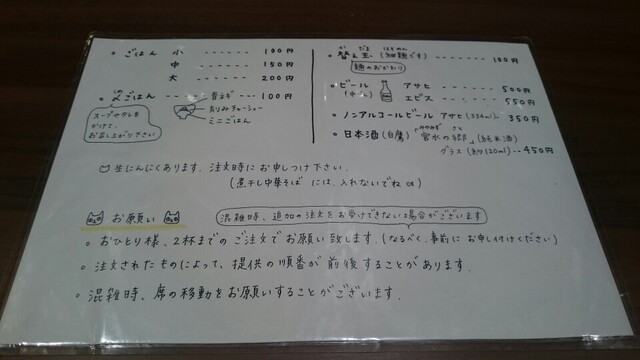 ごはん 小 ------ 100円
中 ------ 150円
大 ------ 200円
〆ごはん ------ 100円
しめ
青ネギ
刻みチャーシュー
ミニごはん
スープやタレを
かけて、
お召し上がり下さい
替え玉 (細麺です) ------- 100円
か だま ほそめん
麺のおかわり
ビール アサヒ ------- 500円
(中びん) エビス ------- 550円
ノンアルコールビール アサヒ(334ml) 350円
日本酒(白鷹)「宮水の郷」(純米酒)
みやみず さと
グラス(約120ml) -- 450円
生にんにくあります。注文時にお申しつけ下さい。
(煮干し中華そば には、入れないでね)
お願い
混雑時、追加の注文をお受けできない場合がございます
おひとり様、2杯までのご注文でお願い致します。(なるべく、事前にお申し付けください)
注文されたものによって、提供の順番が前後することがあります。
混雑時、席の移動をお願いすることがございます。